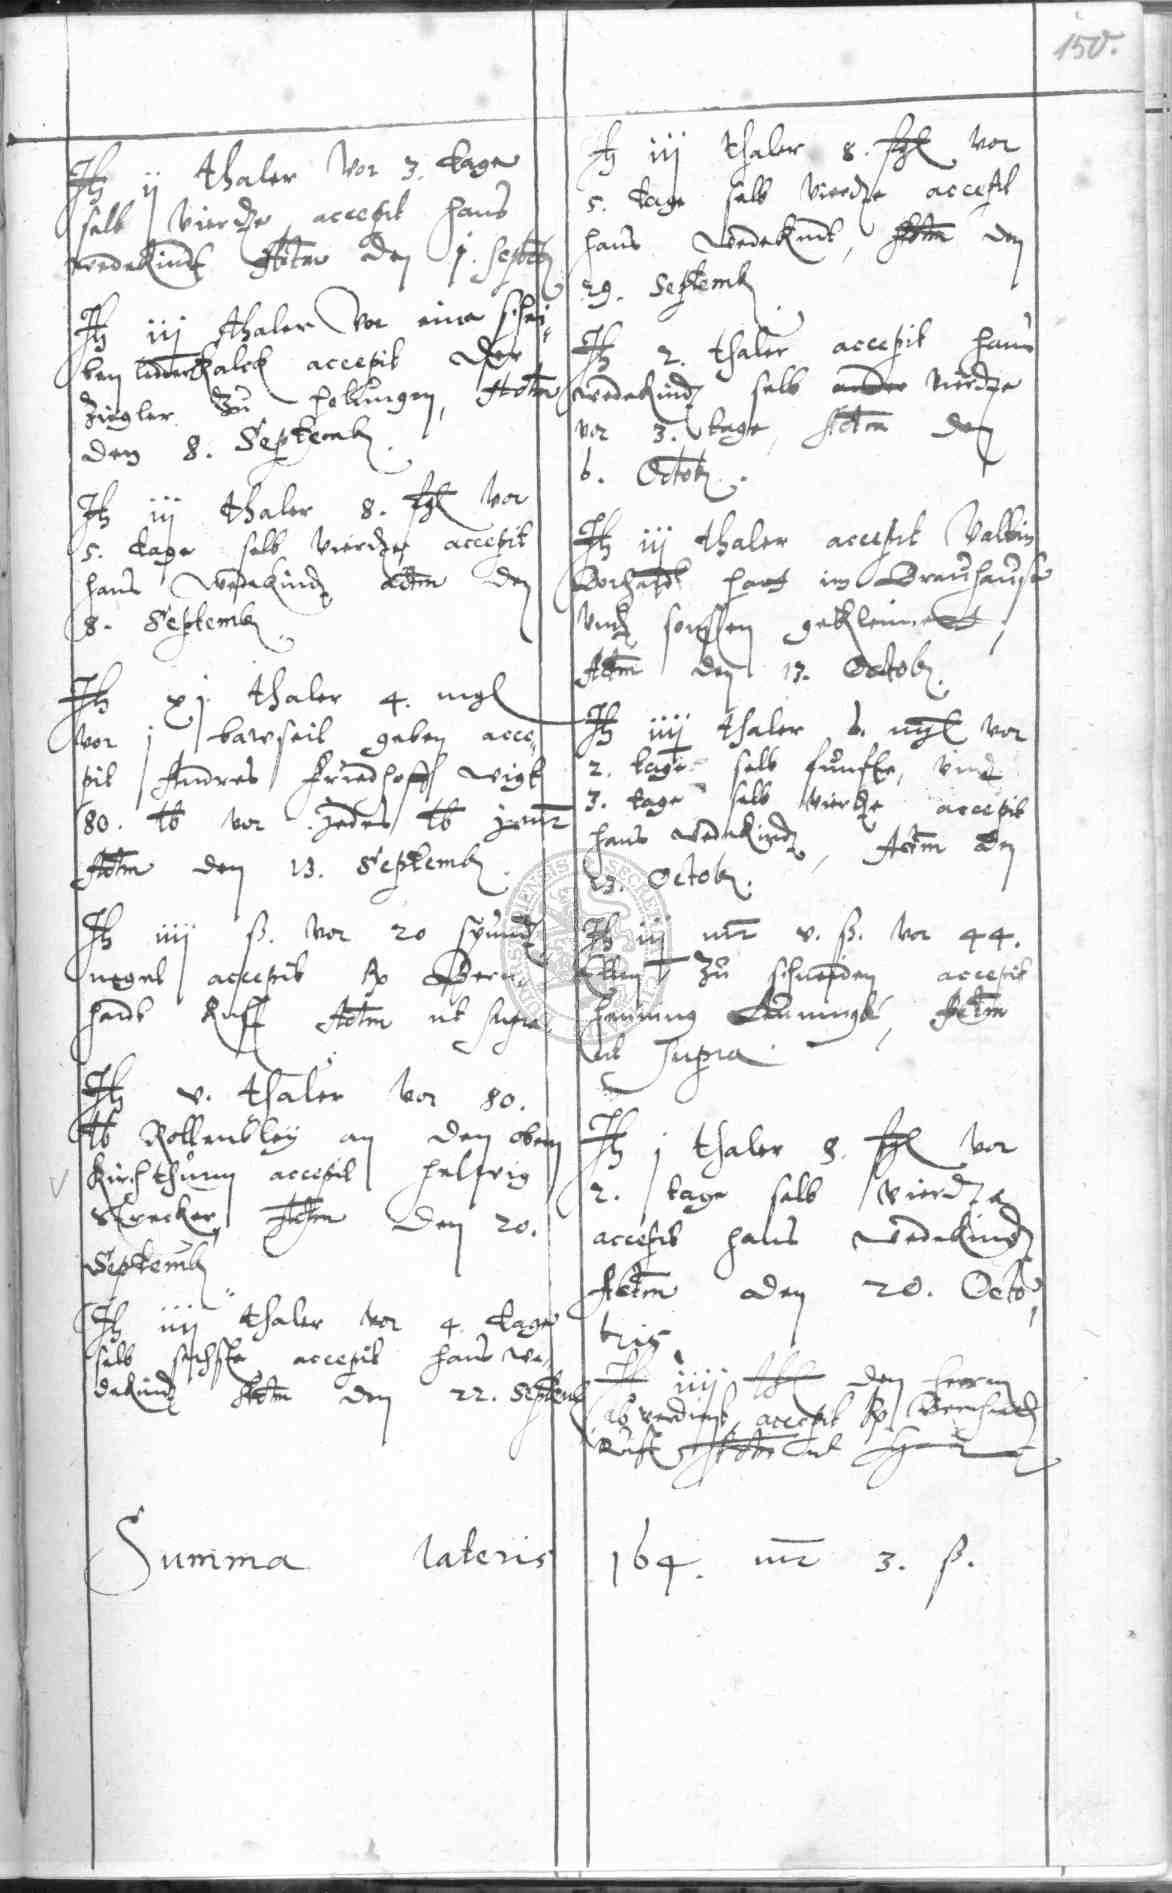 150.
It. ij thaler vor 3. tage
selb vierdte accepit hans
wedekindt Actm den 1. Septemb.
It. iij thaler vor eine
accepit der
Ziegler zu Holtungen, Actm
den 8. Septemb.
It. iij thaler 8. fgl vor
5. tage selb vierdte accepit
hans wedekindt Actm den
8. Septemb.
It. xj thaler 4. mgl
vor j bawseil geben acce-
pit Andres Friedhoff wigt
80. lb vor jedes lb
Actm den 13. Septemb.
It. iiij ß. vor 20
negel accepit Bern-
hardt Ruff Actm ut supra
It. v. thaler vor 80.
lb Rollenbley an den obern
Kirchthurm accepit helfrig
Strecker Actm den 20.
Septemb.
It. iiij thaler vor 4. tage
selb sechste accepit hans we-
dekindt Actm den 22. Septemb.
It. iij thaler 8. fgl vor
5. tage selb vierdte accepit
hans wedekindt, Actm den
29. Septemb.
It. 2. thaler accepit hans
wedekindt selb ander vierdte
vor 3. tage, Actm den
6. Octob.
It. iij thaler accepit Valtin
Borchardt hart im Brauhause
vndt sonsten gekleimett,
Actm den 13. Octob.
It. iiij thaler 6. mgl vor
2. tage selb funfte, vnd
3. tage selb vierdte accepit
hans wedekindt, Actm den
13. Octob.
It. iij mr v. ß. vor 44.
Ellen zu schneiden accepit
Henning, Actm
ut supra
It. j thaler 8. fgl vor
2. tage selb vierdte
accepit hans wedekindt
Actm den 20. Octo-
bris
It. iiij thl den herrn
accepit Bernhardt
Ruff Actm ut supra
Summa lateris 164. mr 3. ß.